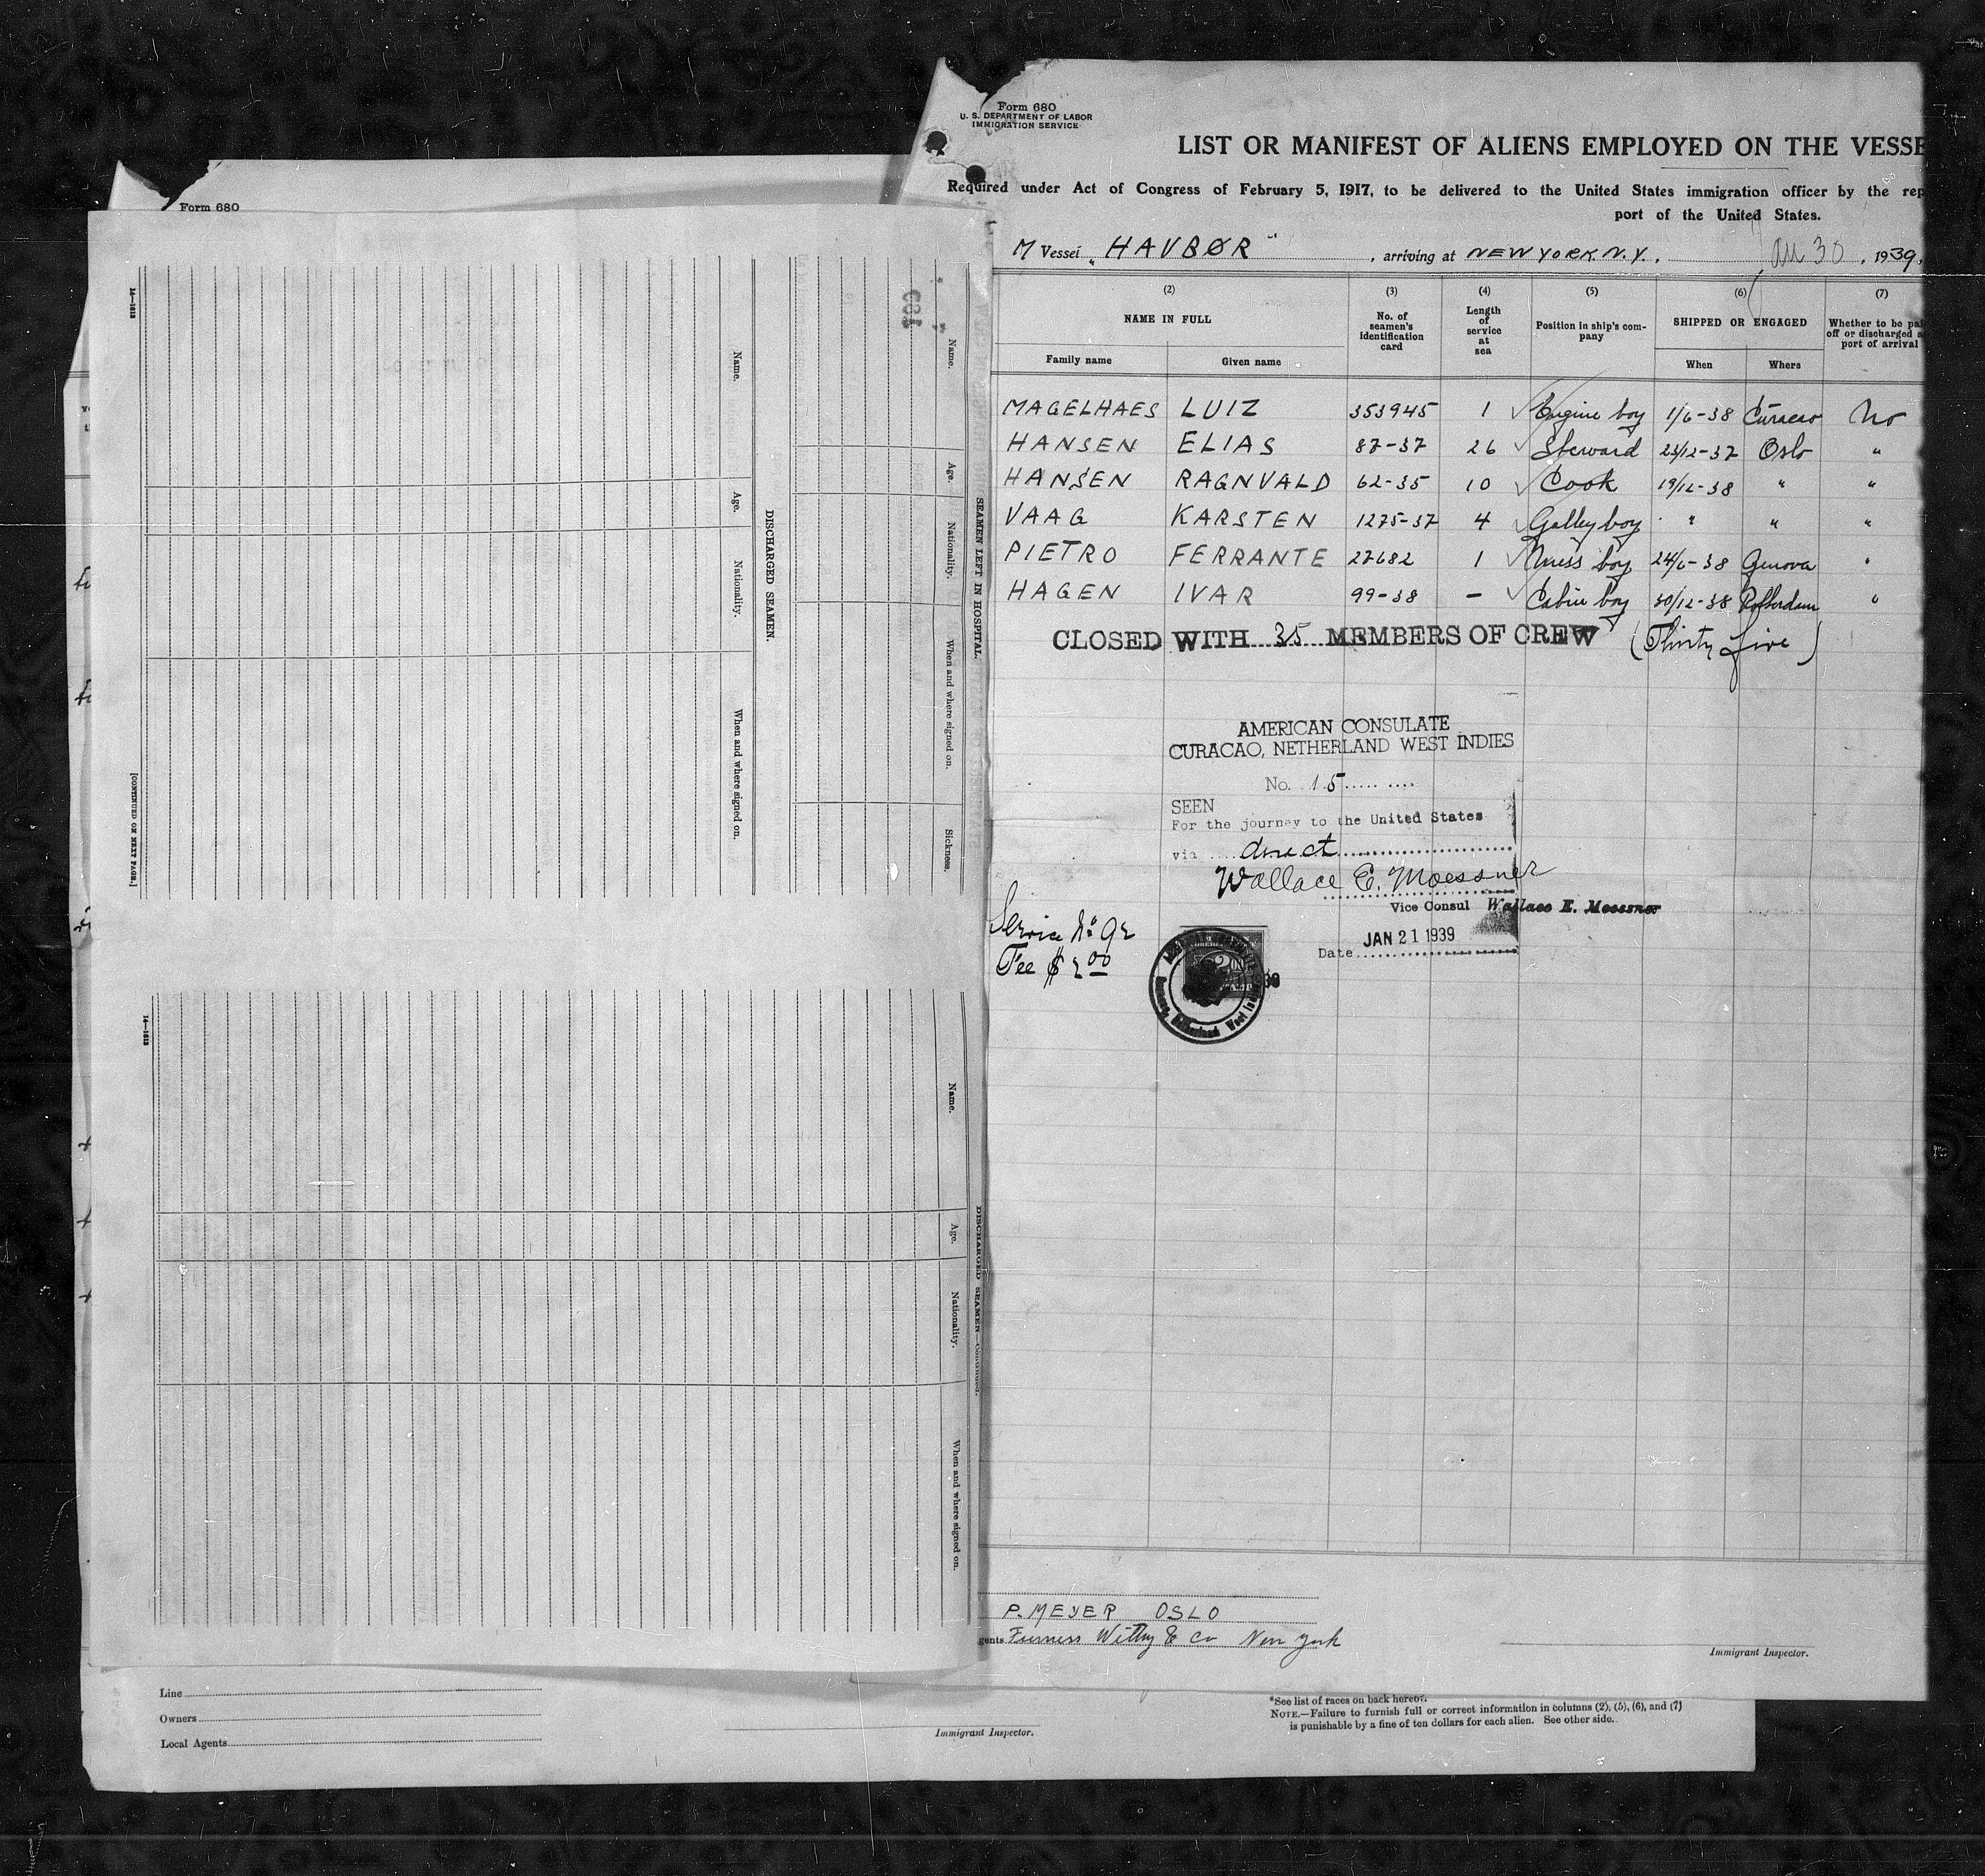 Form 680
U. S. DEPARTMENT OF LABOR
IMMIGRATION SERVICE
LIST OR MANIFEST OF ALIENS EMPLOYED ON THE VESSE
Required under Act of Congress of February 5, 1917, to be delivered to the United States immigration officer by the rep
port of the United States.
M Vessel "HAVBØR", arriving at NEW YORK N.Y., 30, 1939.
(2) (3) (4) (5) (6) (7)
NAME IN FULL
Family name Given name
No. of seamen's identification card
Length of service at sea
Position in ship's company
SHIPPED OR ENGAGED
When Where
Whether to be pai
off or discharged a
port of arrival
MAGELHAES LUIZ 353945 1 Engine boy 1/6-38 Curacao No
HANSEN ELIAS 87-37 26 Steward 23/12-37 Oslo "
HANSEN RAGNVALD 62-35 10 Cook 19/12-38 " "
VAAG KARSTEN 1275-37 4 Galley boy " " "
PIETRO FERRANTE 27682 1 Mess boy 24/6-38 Genova "
HAGEN IVAR 99-38 – Cabin boy 30/12-38 Rotterdam "
CLOSED WITH 35 MEMBERS OF CREW (Thirty five)
AMERICAN CONSULATE
CURACAO, NETHERLAND WEST INDIES
No. 15
SEEN
For the journey to the United States
via direct
Wallace E. Moessner
Vice Consul Wallace E. Moessner
Date JAN 21 1939
Service No 92
Fee $ 2 00
P. MEYER OSLO
gents Furness Withy & Co New York
Immigrant Inspector.
Form 680
SEAMEN LEFT IN HOSPITAL.
Name. Age. Nationality. When and where signed on. Sickness.
DISCHARGED SEAMEN.
Name. Age. Nationality. When and where signed on.
14—1613
[CONTINUED ON NEXT PAGE.]
DISCHARGED SEAMEN—Continued.
Name. Age. Nationality. When and where signed on.
14—1613
Line
Owners
Local Agents
Immigrant Inspector.
*See list of races on back hereof.
NOTE.—Failure to furnish full or correct information in columns (2), (5), (6), and (7)
is punishable by a fine of ten dollars for each alien. See other side.